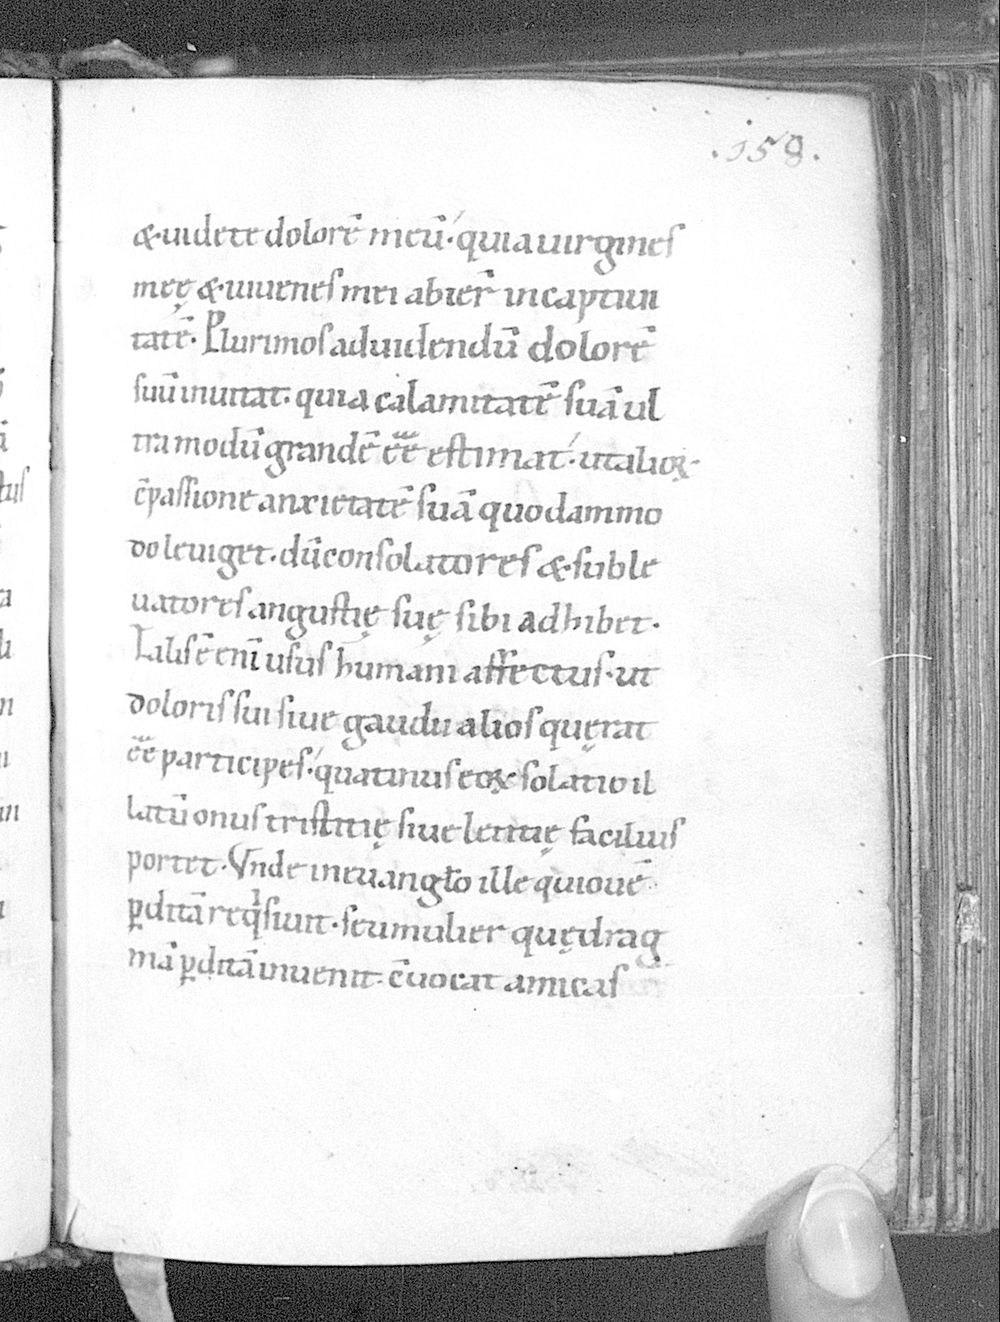 .158.
&·uidete dolorē meū· quia uirgines
meę &·iuuenes mei abier̄ in captiui
tatē· Plurimos ad uidendū dolorē
suū inuitat· quia calamitatē suā ul
tra modū grandē ēē estimat· ut alioꝝ
cp̄assione anxietatē suā quodammo
do leuiget· dū consolatores &·suble
uatores angustię suę sibi adhibet·
Talis ē eni̅ usus humani affectus· ut
doloris sui siue gaudii alios quęrat
ēē participes· quatinus eoꝝ solatio il
latū onus tristitię siue letitię facilius
portet· Vnde in euangło ille qui ouē
ꝑditā reqͥsiuit· seu mulier quę drag
mā ꝑditā inuenit· c̄uocat amicas